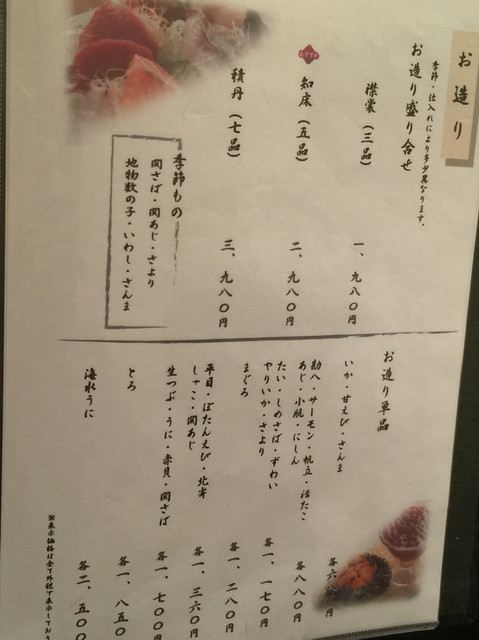 お造り
季節・仕入れにより多少異なります。
お造り盛り合せ
襟裳（三品）
一、九八〇円
おすすめ
知床（五品）
二、九八〇円
積丹（七品）
三、九八〇円
季節もの
関さば・関あじ・さより
地物数の子・いわし・さんま
お造り単品
いか・甘えび・さんま
各六
勘八・サーモン・帆立・活たこ
あじ・小肌・にしん
各八八〇
たい・しめさば・ずわい
やりいか・さより
各一、一七〇円
まぐろ
各一、二八〇円
平目・ぼたんえび・北寄
しゃこ・関あじ
各一、三六〇円
生つぶ・うに・赤貝・関さば
各一、七〇〇円
とろ
各一、八五〇
海水うに
各二、五〇〇
※表示価格は全て外税で表示してお